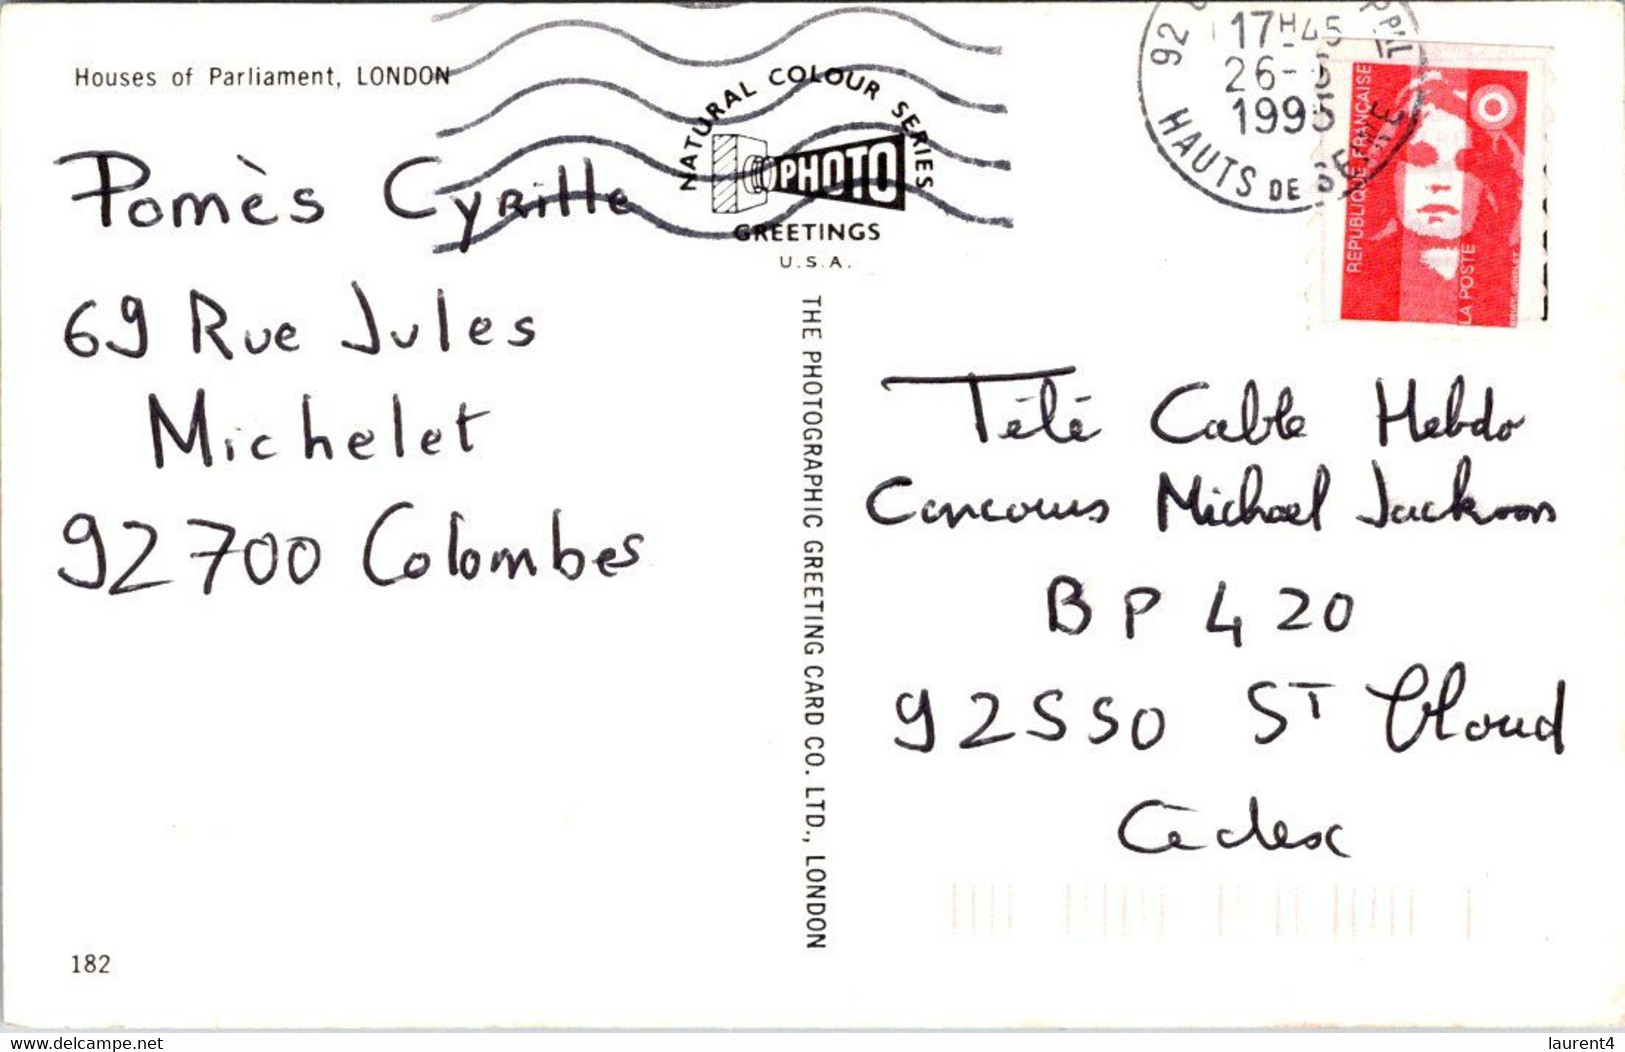 Houses of Parliament, LONDON
NATURAL COLOUR SERIES
PHOTO
GREETINGS
U.S.A.
17H45
26-
199
92
HAUTS DE SEINE
REPUBLIQUE FRANÇAISE
LA POSTE
Pomès Cyrille
69 Rue Jules
Michelet
92700 Colombes
THE PHOTOGRAPHIC GREETING CARD CO. LTD., LONDON
Télé Cable Hebdo
Concours Michael Jackson
BP 420
92550 ST Cloud
Cèdex
182
www.delcampe.net
laurent4